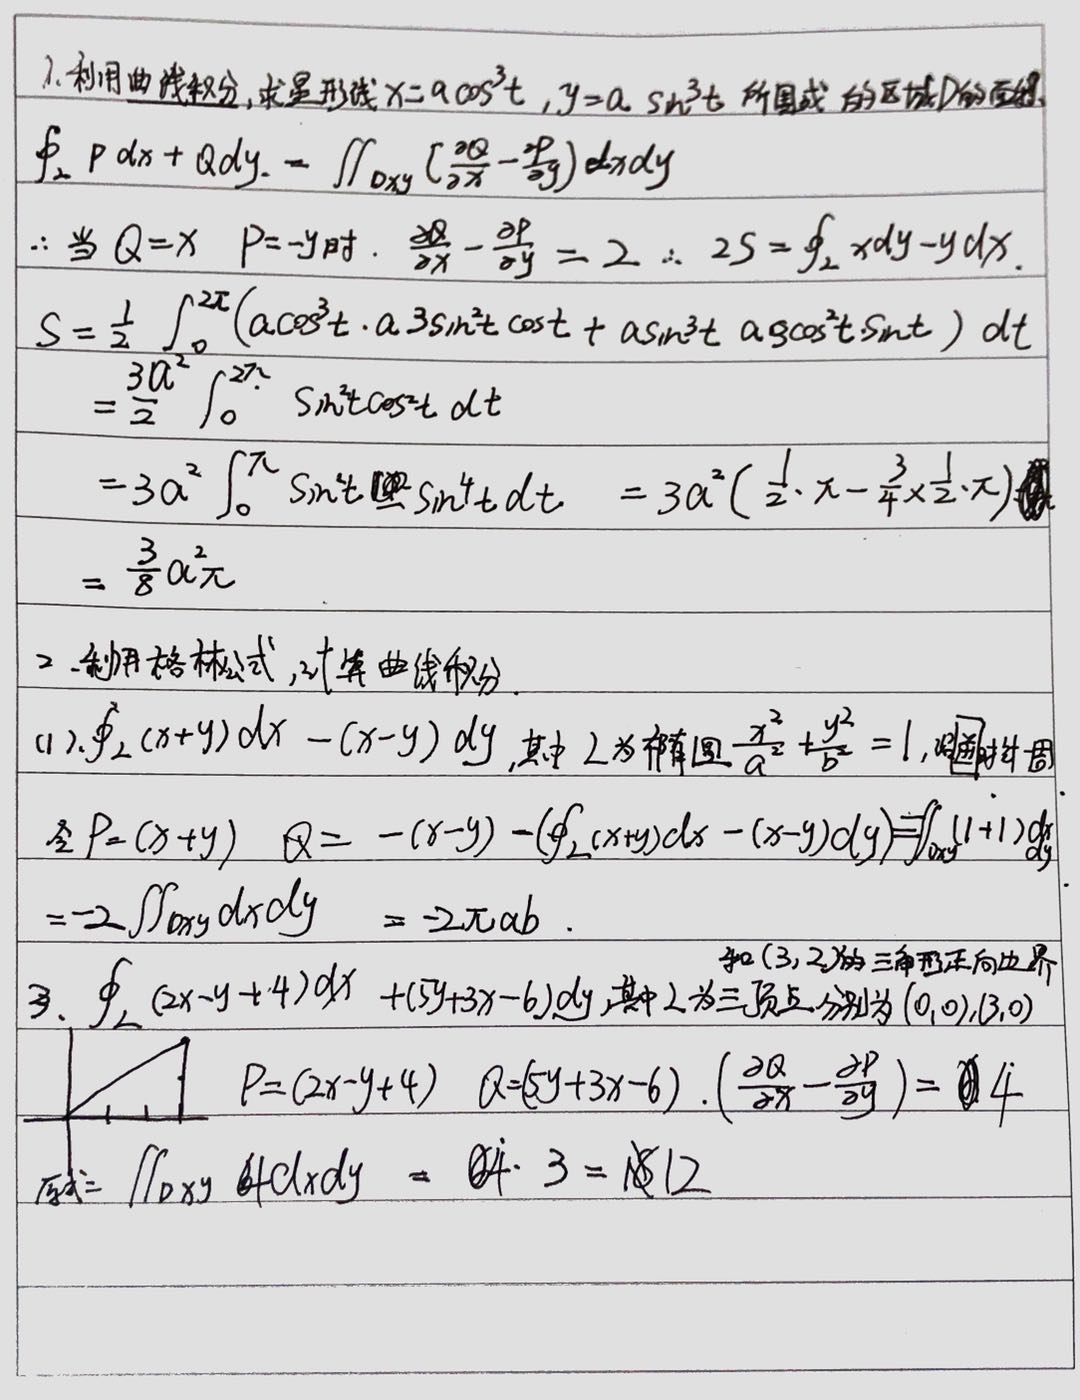 1.利用曲线积分,求星形线x=a cos³t,y=a sin³t 所围成的区域D的面积.
∮_L P dx + Q dy. = ∬_Dxy (∂Q/∂x - ∂P/∂y) dxdy
∴ 当 Q=x P=-y时. ∂Q/∂x - ∂P/∂y = 2 ∴ 2S = ∮_L xdy-ydx.
S = 1/2 ∫_0^2π (acos³t · a3sin²t cost + asin³t a3cos²t sint) dt
= 3a²/2 ∫_0^2π sin²tcos²t dt
= 3a² ∫_0^π sin²t - sin⁴t dt = 3a² (1/2·π - 3/4×1/2·π)
= 3/8 a²π
2.利用格林公式,计算曲线积分.
(1).∮_L (x+y)dx -(x-y)dy,其中L为椭圆 x²/a² + y²/b² = 1, 时针 周
令P=(x+y) Q= -(x-y) -(∮_L(x+y)dx-(x-y)dy)=∬_Dxy(1+1)dxdy
=-2∬_Dxy dxdy = -2πab.
3. ∮_L (2x-y+4)dx +(5y+3x-6)dy,其中L为三顶点分别为(0,0),(3,0)
和(3,2)的三角形正向边界
P=(2x-y+4) Q=(5y+3x-6).(∂Q/∂x - ∂P/∂y) = 4
原式= ∬_Dxy 4dxdy = 4· 3 = 12